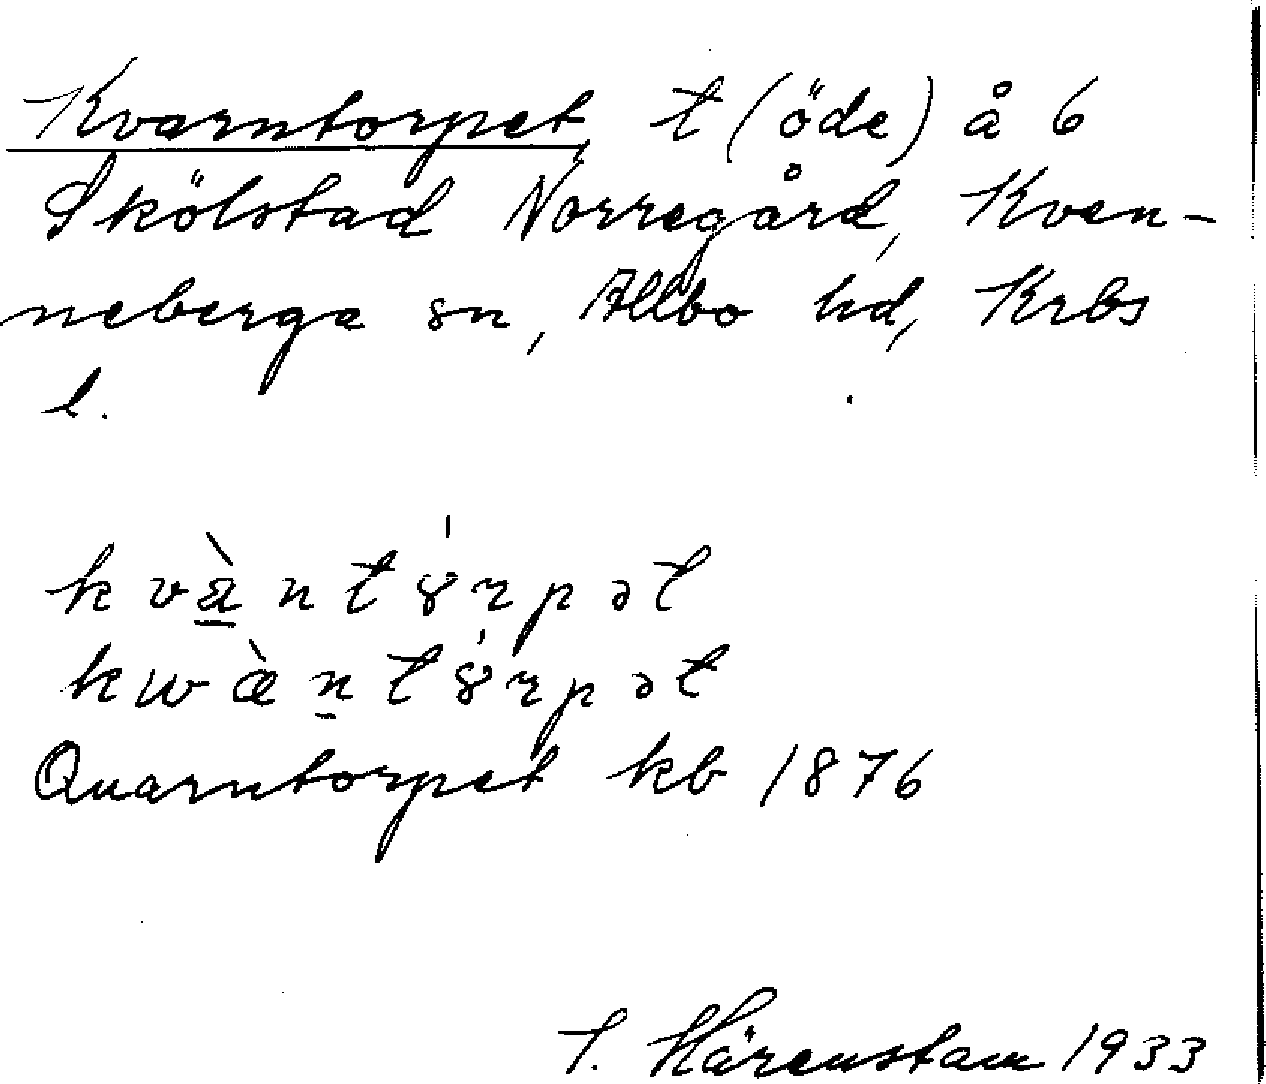 Kvarntorpet, t (öde) å 6
Skölstad Norregård, Kven-
neberga sn, Allbo hd, Krbs
l.
Quarntorpet kb 1876
Härenstam 1933